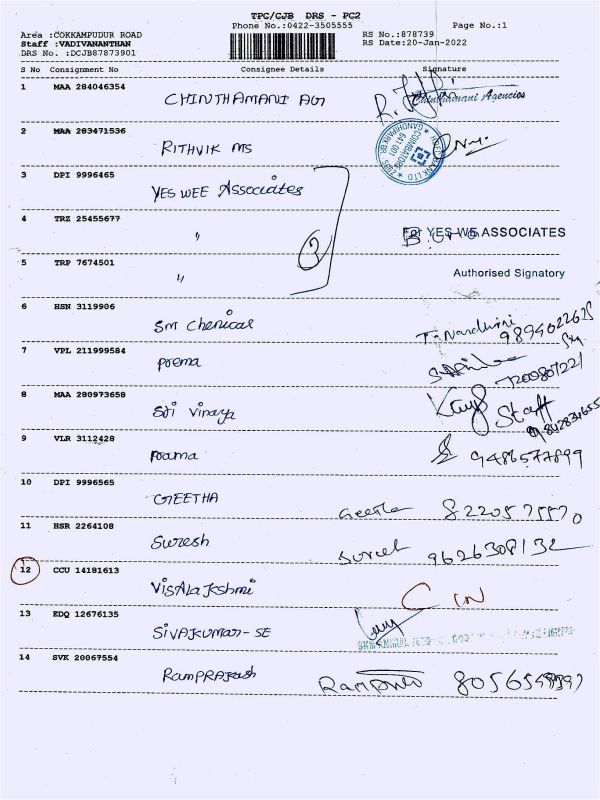 TPC/CJB DRS - PC2
Phone No.:0422-3505555
Page No.:1
Area :COKKAMPUDUR ROAD
Staff :VADIVANANTHAN
DRS No. :DCJB87873901
RS No.:878739
RS Date:20-Jan-2022
S No Consignment No Consignee Details Signature
1 MAA 284046354 CHINTHAMANI AGI
Chinthamani Agencies
2 MAA 283471536 RITHVIK MS
3 DPI 9996465 YES WEE Associates
4 TRZ 25455677 "
For YES WE ASSOCIATES
5 TRP 7674501 "
Authorised Signatory
6 HSN 3119906 Sm Chemical T. Nandhini 9894022625
7 VPL 211999584 Prema 7200807221
8 MAA 280973658 Sri Vinaya Staff
9 VLR 3112428 Prama 9486577899
10 DPI 9996565 GEETHA Geetha 8220575570
11 HSR 2264108 Suresh 9626308132
12 CCU 14181613 Visalakshmi
13 EDQ 12676135 SIVAKUMAR-SE
14 SVK 20067554 RAMPRAKash